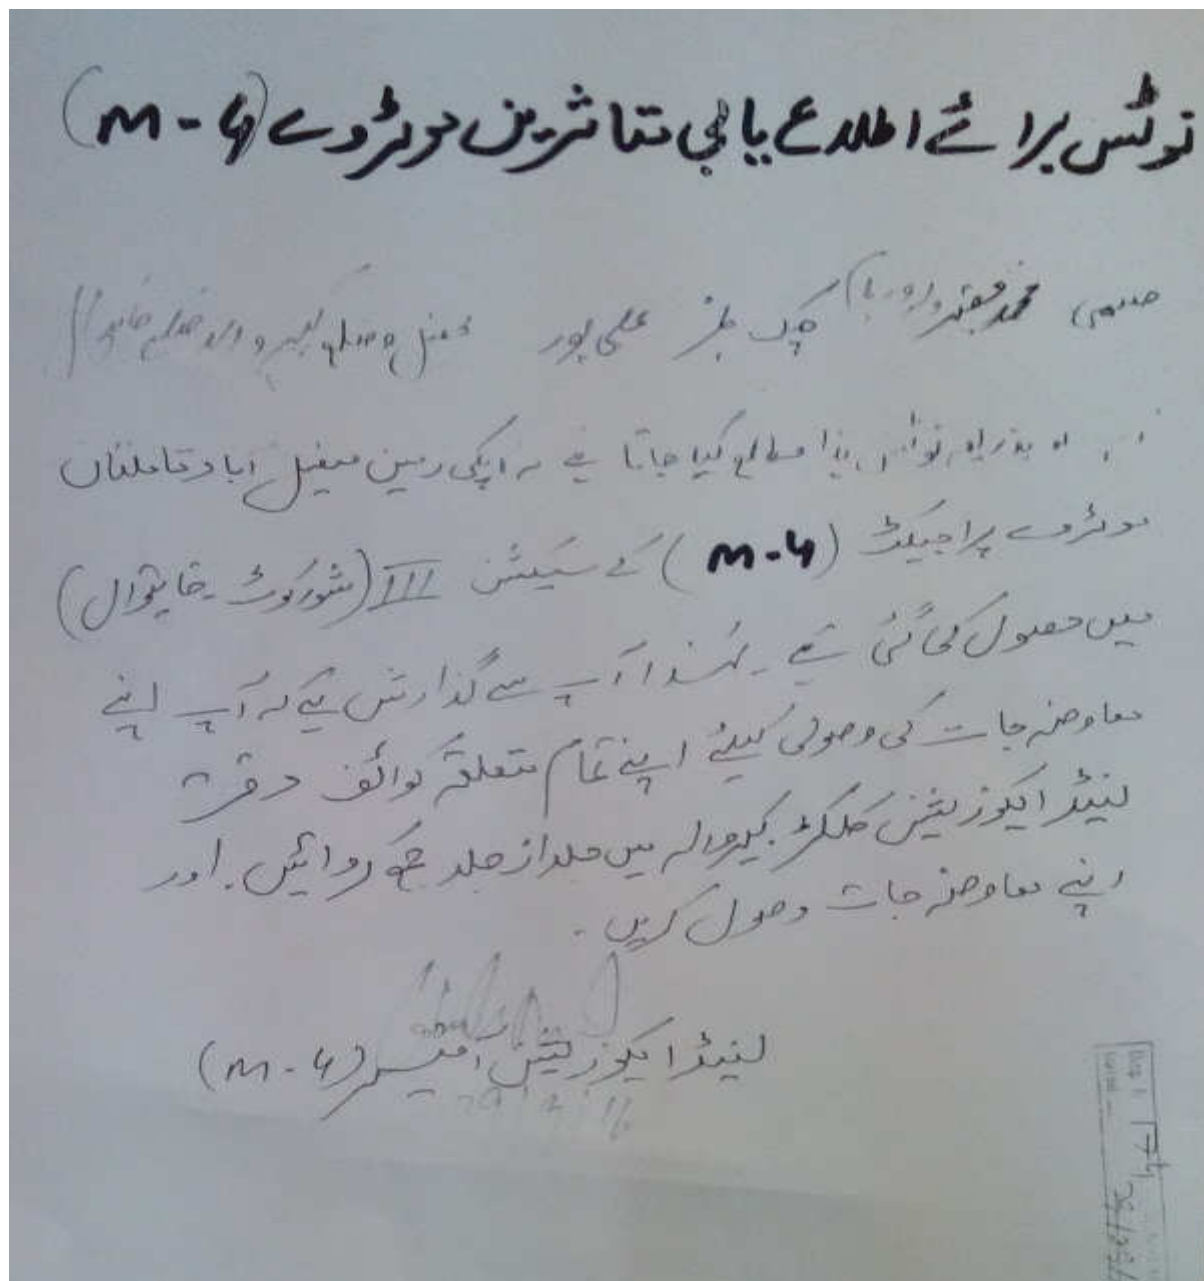 نوٹس برائے اطلاع یابی متاثرین موٹروے (M-4)
محمد چک نمبر علی پور تحصیل و ضلع
آپ کو بذریعہ نوٹس ہذا مطلع کیا جاتا ہے کہ آپکی زمین فیصل آباد تا ملتان
موٹروے پراجیکٹ (M-4) کے سیکشن III (شورکوٹ - خانیوال)
میں حصول کی گئی ہے۔ لہذا آپ سے گذارش ہے کہ آپ اپنے
معاوضہ جات کی وصولی کیلئے اپنے تمام متعلقہ کوائف دفتر
لینڈ ایکوزیشن کلکٹر کبیروالہ میں جلد از جلد جمع کروائیں۔ اور
اپنے معاوضہ جات وصول کریں۔
لینڈ ایکوزیشن آفیسر (M-4)
174